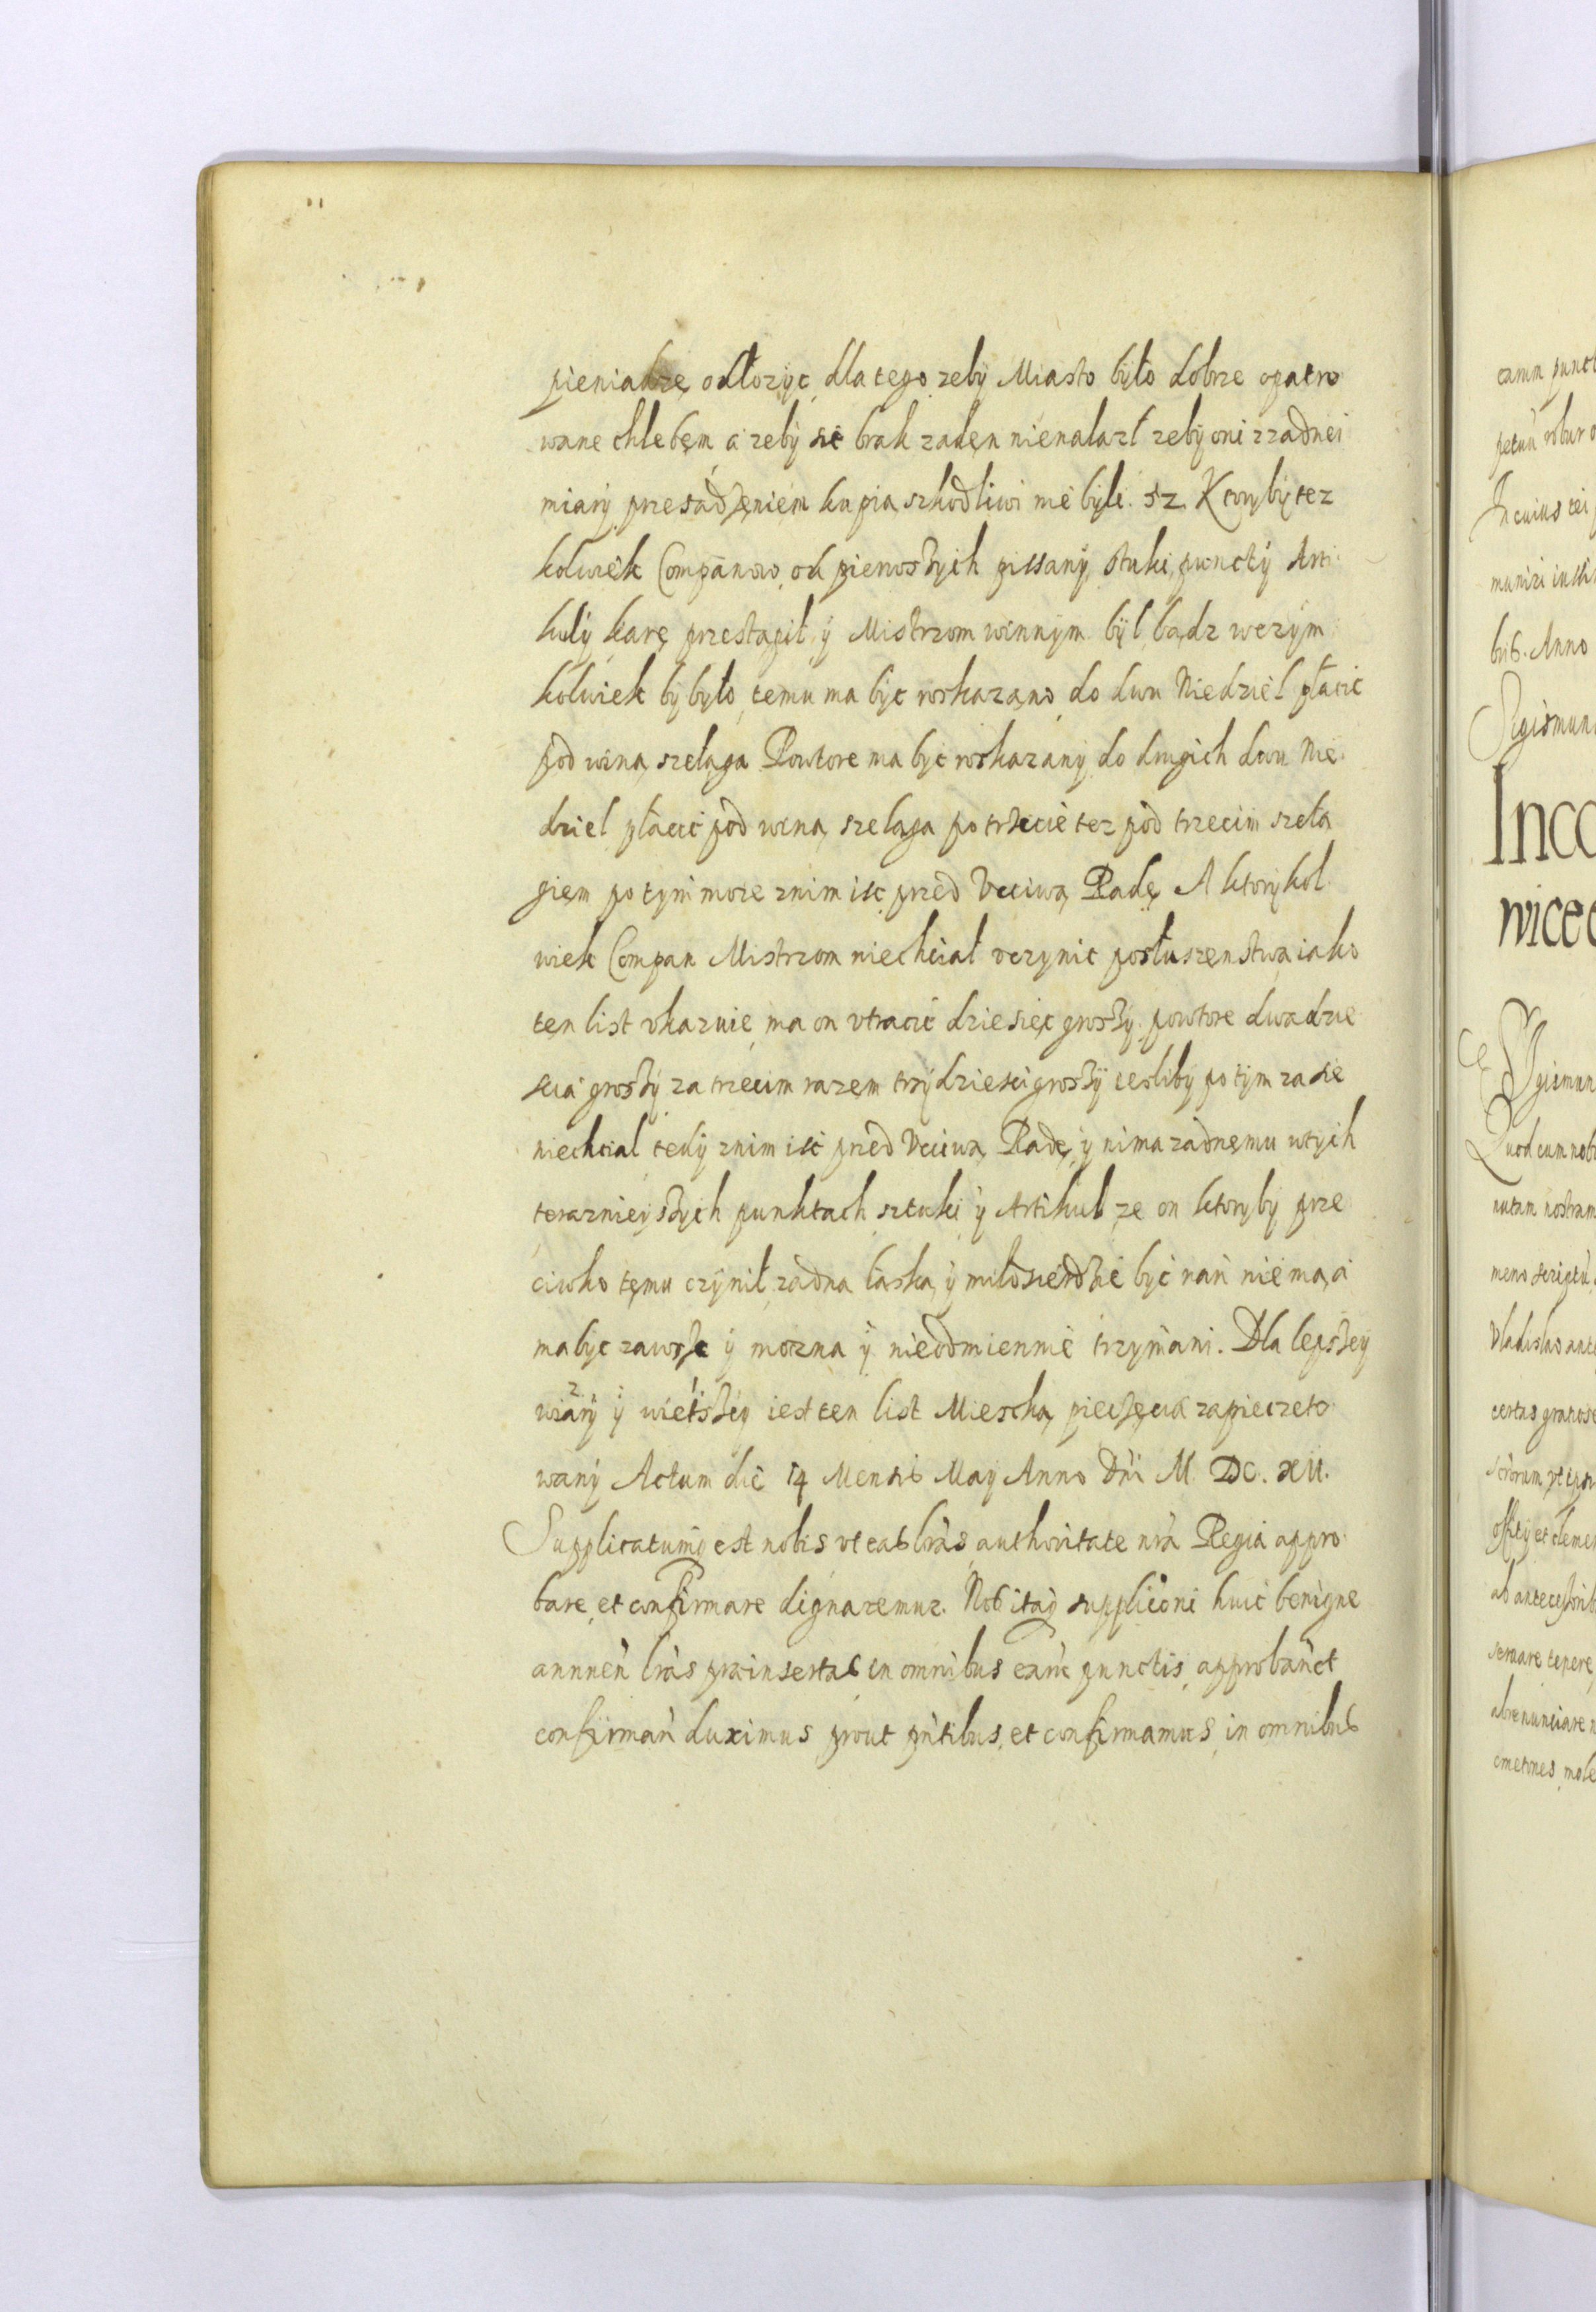 pieniadze, odłozyc, dla tego zeby Miasto było dobrze opatro
wane chlebem a zeby sie brak zaden nienalazł zeby oni zzadnei
miary przesadzeniem kupia szkodliwi nie byli. 52. Ktoryby tez
kolwiek Companow, od pierwszych pissany stuki, puncty Arti
kuły kare przestapił y Mistrzom winnym był, badz wczym
kolwiek by było, temu ma byc roskazano, do dwu Niedziel płacic
pod wina szelaga Powtore ma byc roskazany do drugich dwu Nie
dziel płacic pod wina szelaga po trzecie tez pod trzecim szela
giem po tym moze znim isc przed Vcciwa Rade A ktory kol
wiek Compan Mistrzom niechciał vczynic posłuszenstwa iako
ten list vkazuie, ma on vtracic dziesięc groszy, powtore dwadzie
scia groszy za trzecim razem trzydziesci groszy iesliby po tym zasie
niechciał tedy znim isc przed Vcciwa Rade, y nima zadnemu wtych
terazniejszych punktach sztuki y Artikuł ze on ktoryby prze
ciwko temu czynił, zadna łaska, y miłosierdzie byc nań niema, a
ma byc zawsze y mozna y nieodmiennie trzymani. Dla lepszey
wiary y wietszey iest ten list Miescka pieczecia zapieczeto
wany Actum die 14 Mensis May Anno Dni M. DC. XII.
Supplicatumq est nobis vt eas lras authoritate nra Regia appro
bare, et confirmare dignaremur. Nos itaq suppliconi huic benigne
annuen lras praeinsertas in omnibus earu punctis, approban et
confirman duximus prout pntibus, et confirmamus, in omnibus
carum punct
petuu robur
In cuius rei
muniri iussi
bris. Anno
Sigismun
Inco
wice
Sigismun
Quod cum nob
nutam nostram
meno script
Vladislao ant
certas grano